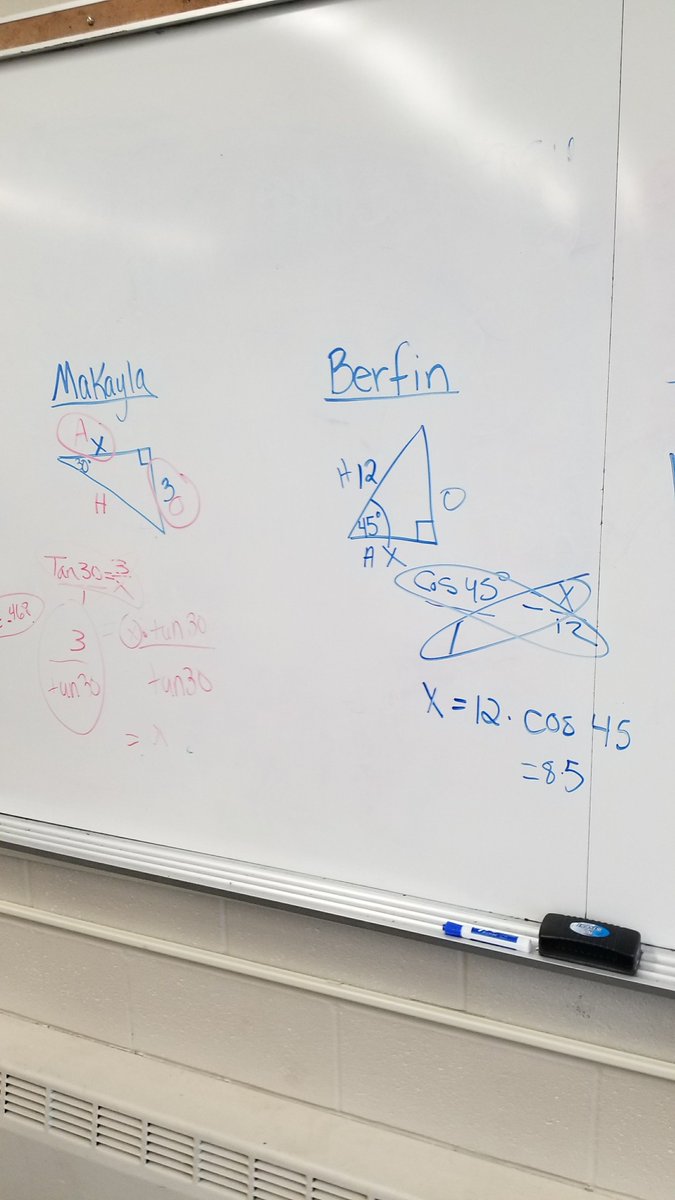 Makayla
A
X
30°
3
O
H
Tan30 = 3
1 X
3 = X · tan30
tan30 tan30
= X
Berfin
H 12
O
45°
A X
Cos 45° X
1 12
X = 12 · cos 45
= 8.5